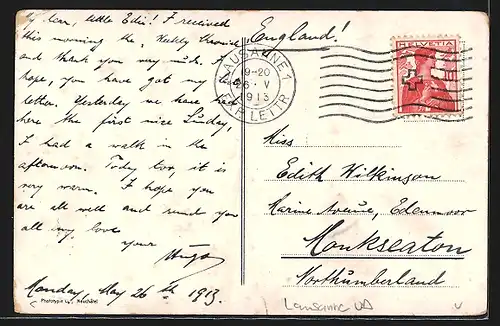 My dear, little Edie! I received
this morning the "Weekly Chronicle"
and thank you very much. I
hope, you have got my
letter. Yesterday we have had
here the first nice Sunday,
I had a walk in the
afternoon. Today too, it is
very warm. I hope you
are all well and send you
all my love
your
Hugo
Monday, May 26th 1913.
Phototypie Co., Neuchâtel
England!
LAUSANNE 1
19-20
26 · V
1913
EXP. LETTR.
HELVETIA
10
Miss
Edith Wilkinson
Marine Avenue, Edenmoor
Monkseaton
Northumberland
Lausanne VD